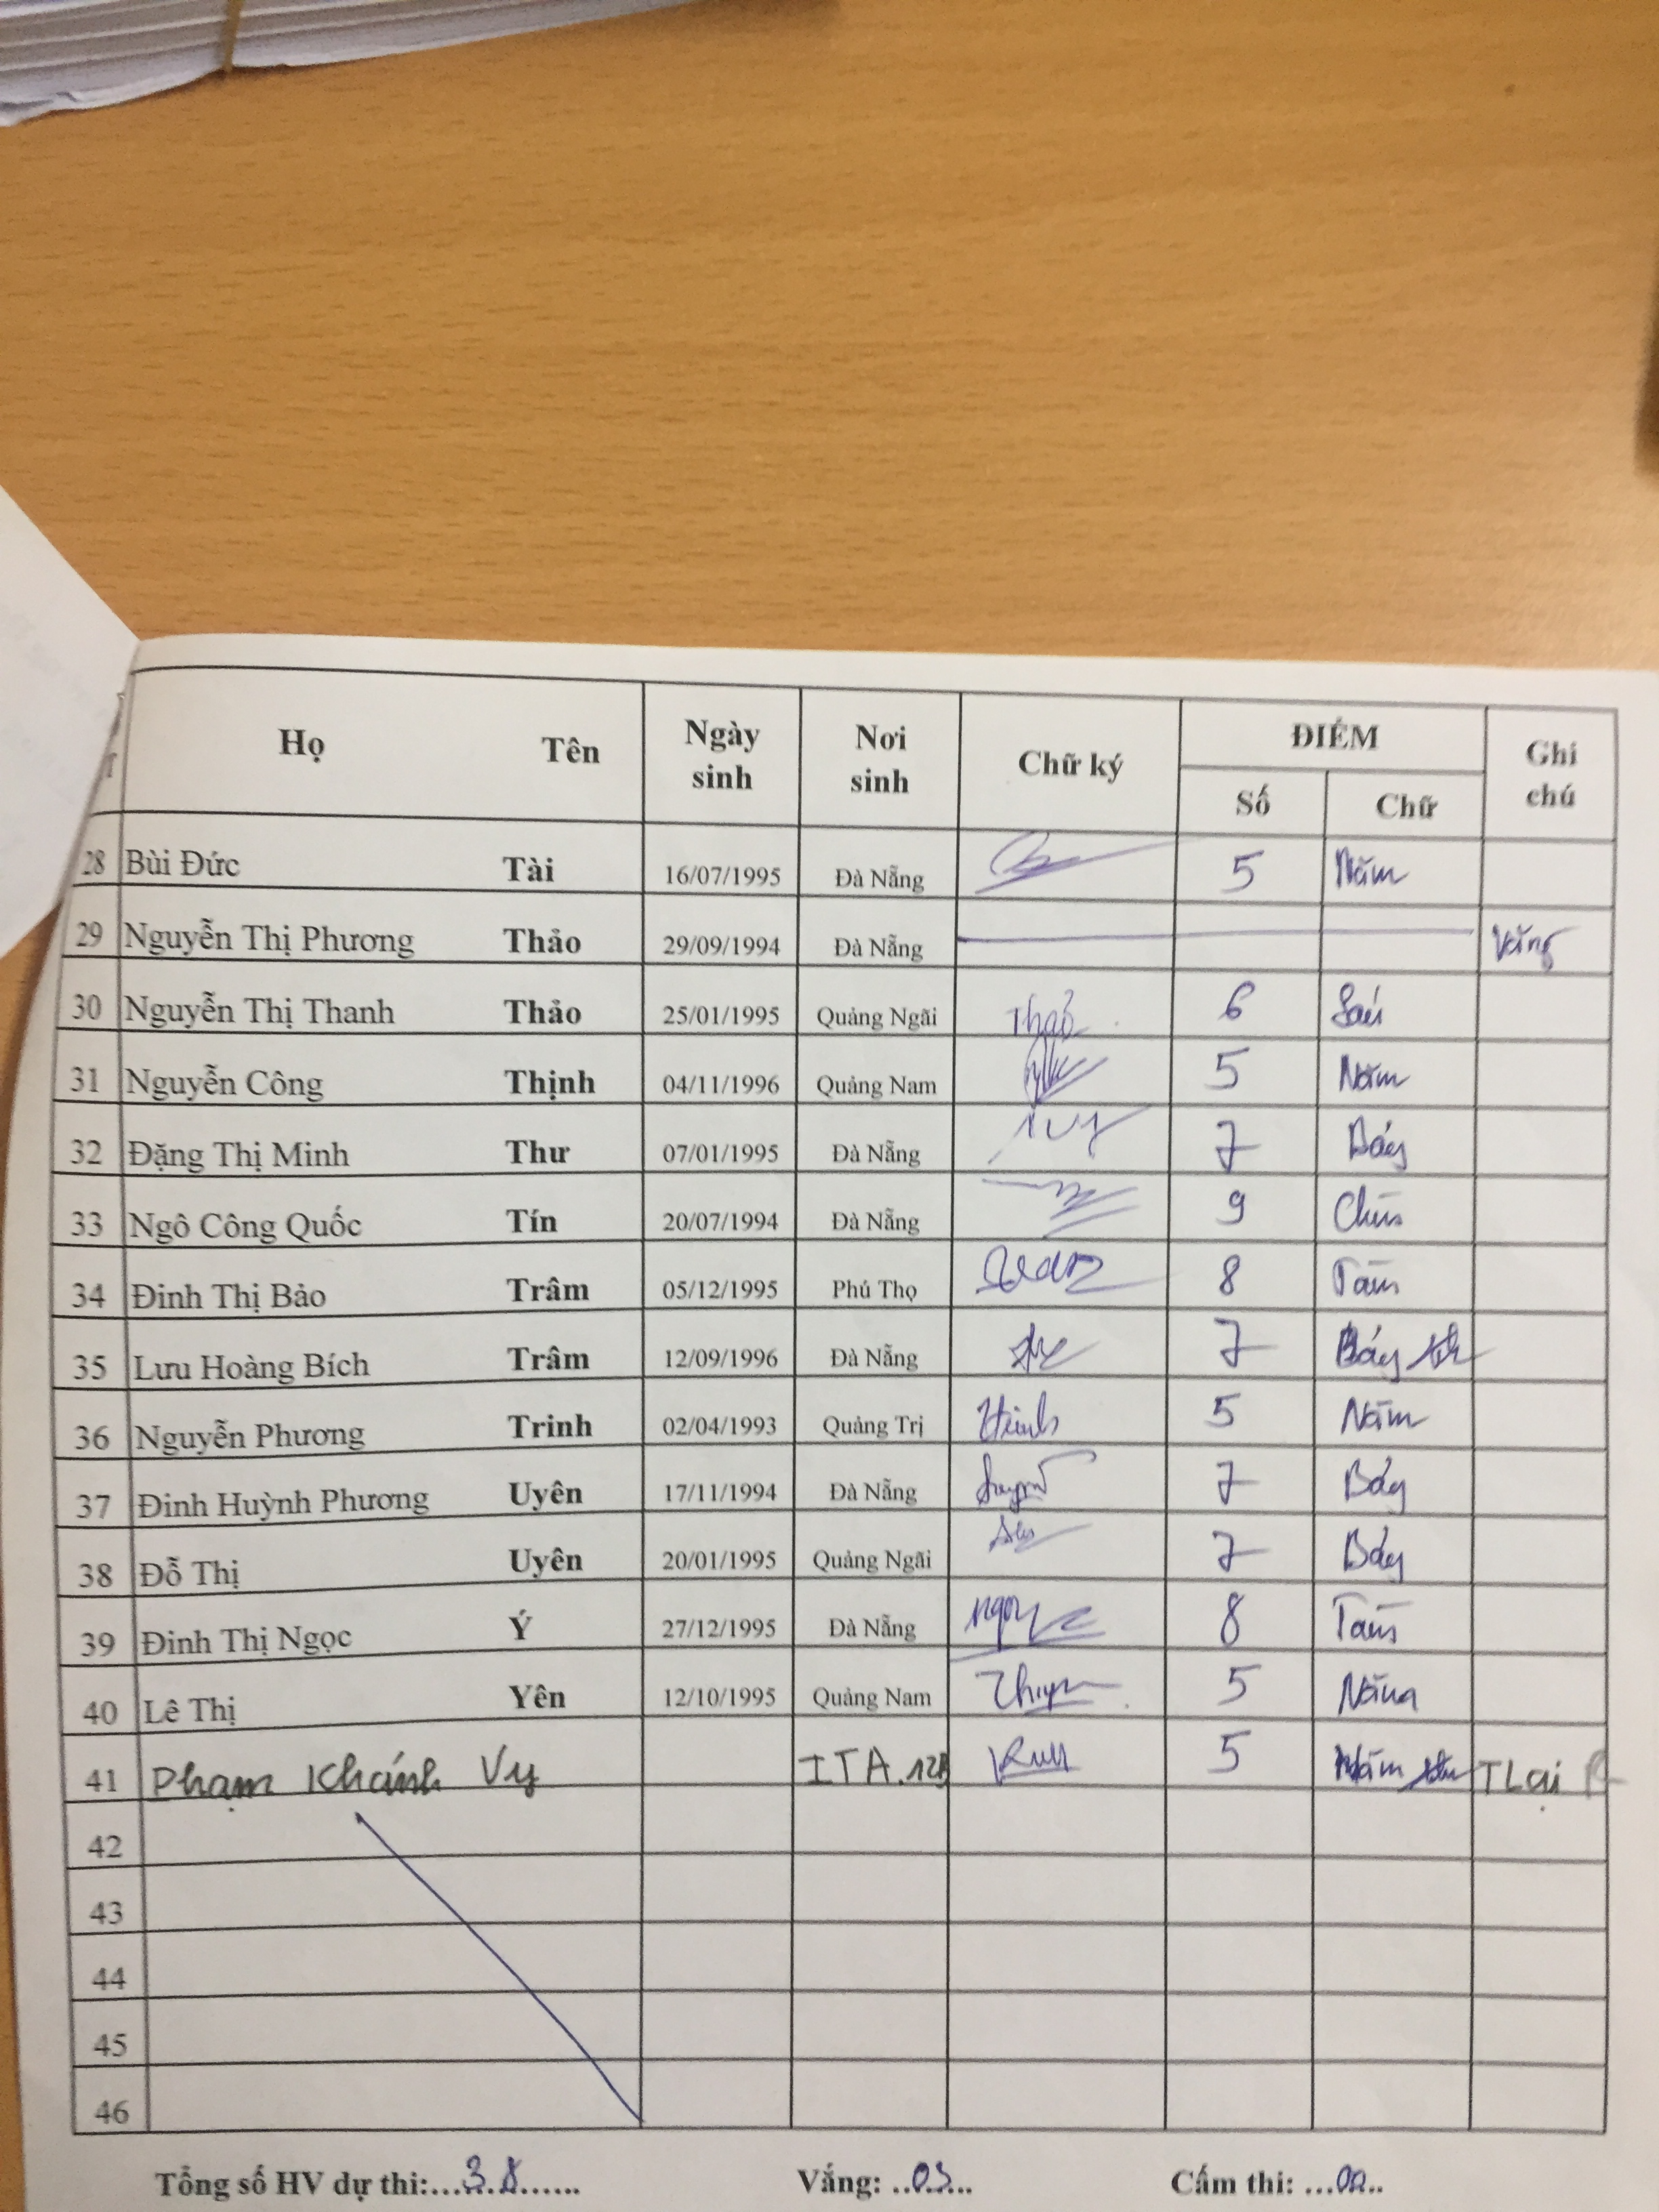 Họ Tên Ngày sinh Nơi sinh Chữ ký ĐIỂM Ghi chú
Số Chữ
28 Bùi Đức Tài 16/07/1995 Đà Nẵng 5 Năm
29 Nguyễn Thị Phương Thảo 29/09/1994 Đà Nẵng Vắng
30 Nguyễn Thị Thanh Thảo 25/01/1995 Quảng Ngãi Thảo 6 Sáu
31 Nguyễn Công Thịnh 04/11/1996 Quảng Nam 5 Năm
32 Đặng Thị Minh Thư 07/01/1995 Đà Nẵng 7 Bảy
33 Ngô Công Quốc Tín 20/07/1994 Đà Nẵng 9 Chín
34 Đinh Thị Bảo Trâm 05/12/1995 Phú Thọ 8 Tám
35 Lưu Hoàng Bích Trâm 12/09/1996 Đà Nẵng 7 Bảy
36 Nguyễn Phương Trinh 02/04/1993 Quảng Trị 5 Năm
37 Đinh Huỳnh Phương Uyên 17/11/1994 Đà Nẵng 7 Bảy
38 Đỗ Thị Uyên 20/01/1995 Quảng Ngãi 7 Bảy
39 Đinh Thị Ngọc Ý 27/12/1995 Đà Nẵng 8 Tám
40 Lê Thị Yên 12/10/1995 Quảng Nam 5 Năm
41 Phạm Khánh Vy ITA.12B 5 Năm TLại
42
43
44
45
46
Tổng số HV dự thi:....38...... Vắng: ..03... Cấm thi: ...00..